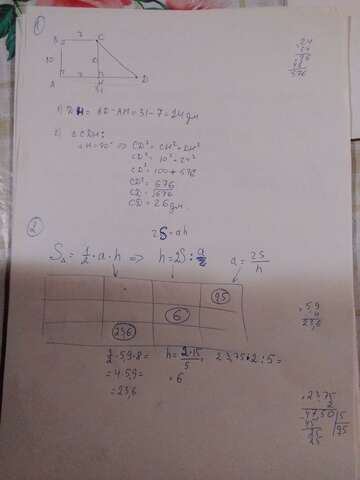 1
B 7 C
10
A H D
31
24
24
96
48
576
1) DH = AD-AH=31-7=24 дм
2) △CDH:
∠H=90° ⇒ CD²=CH²+DH²
CD²=10²+24²
CD²=100+576
CD²=676
CD=√676
CD=26 дм
2
2S=ah
S△ = 1/2 · a · h ⇒ h=2S:a
a=2S/h
9,5
6
23,6
1/2 · 5,9 · 8=
=4·5,9=
=23,6
h=2·15/5
=6
23,75·2:5=
5,9
4
23,6
23,75
2
47,50 | 5
45 | 95
25
25